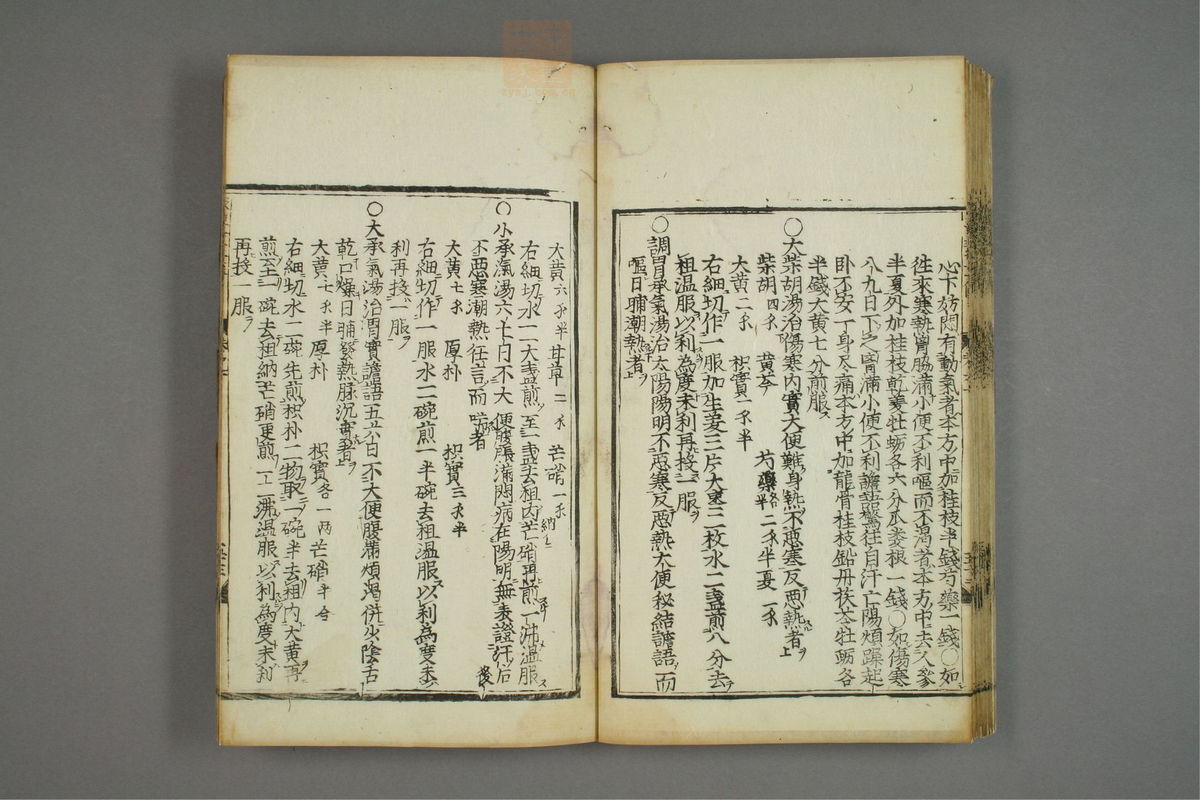 心下妨悶有動氣者本方中加桂枝半錢芍藥一錢〇如
徃來寒熱胷脇滿小便不利嘔而不渴者本方中去人參
半夏外加桂枝乾姜牡蛎各六分瓜蔞根一錢〇如傷寒
八九日下之胷滿小便不利譫語驚狂自汗亡陽煩躁起
卧不安一身尽痛本方中加龍骨桂枝鉛丹茯苓牡蛎各
半錢大黄七分煎服
〇大柴胡湯治傷寒内實大便難身熱不惡寒反惡熱者
柴胡四 黄芩 芍藥各二 半 半夏一
大黄二 枳實一 半
右細切作一服加生姜三片大棗二枚水二盞煎八分去
租温服以利為度未利再投一服
〇調胃承氣湯治太陽陽明不惡寒反惡熱大便秘結譫語而
嘔日晡潮熱者
大黄六 半 甘草二 芒硝一
右細切水一大盞煎至一盞去租内芒硝再煎一沸温服
〇小承氣湯六七日不大便腹脹滿悶病在陽明無表證汗后
不惡寒潮熱狂言而喘者
大黄七 厚朴 枳實三 半
右細切作一服水二碗煎一半碗去租温服以利為度未
利再投一服
〇大承氣湯治胃實譫語五六日不大便腹滿煩渴併少陰舌
乾口燥日晡發熱脉沉實者
大黄七 半 厚朴 枳實各一兩 芒硝半合
右細切水二碗先煎枳朴二物取一碗半去租内大黄再
煎至一碗去租納芒硝更煎一二沸温服以利為度未利
再投一服